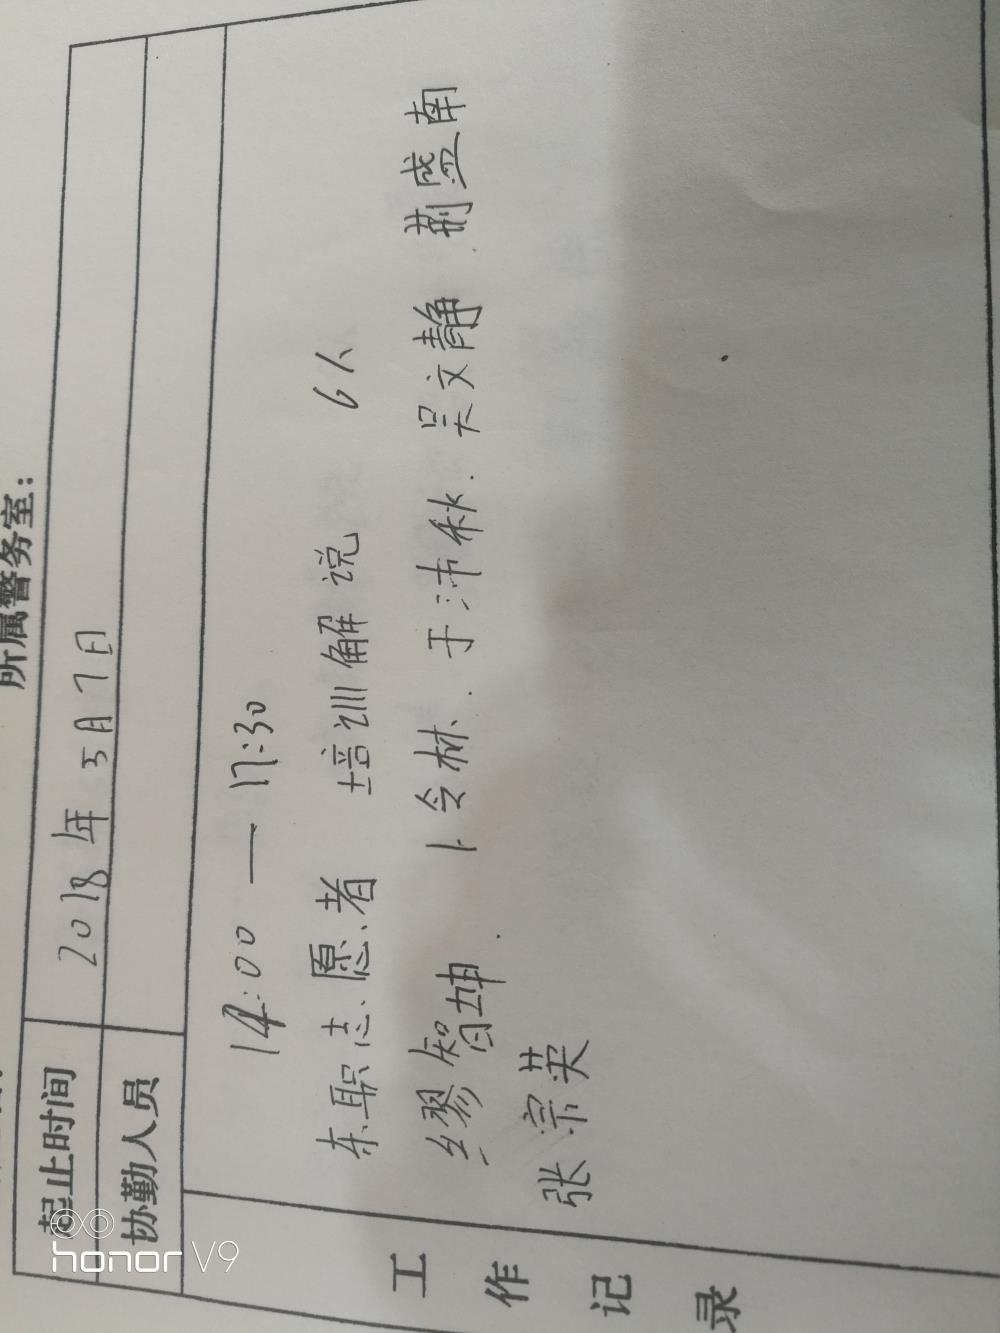 所属警务室：
起止时间 2018年3月7日
协勤人员
工作记录
14:00 — 17:30
东职志愿者 培训解说 6人
缪智坤. 卜令林. 于沛秋. 吴文静. 荆盛南
张宗英
honor V9